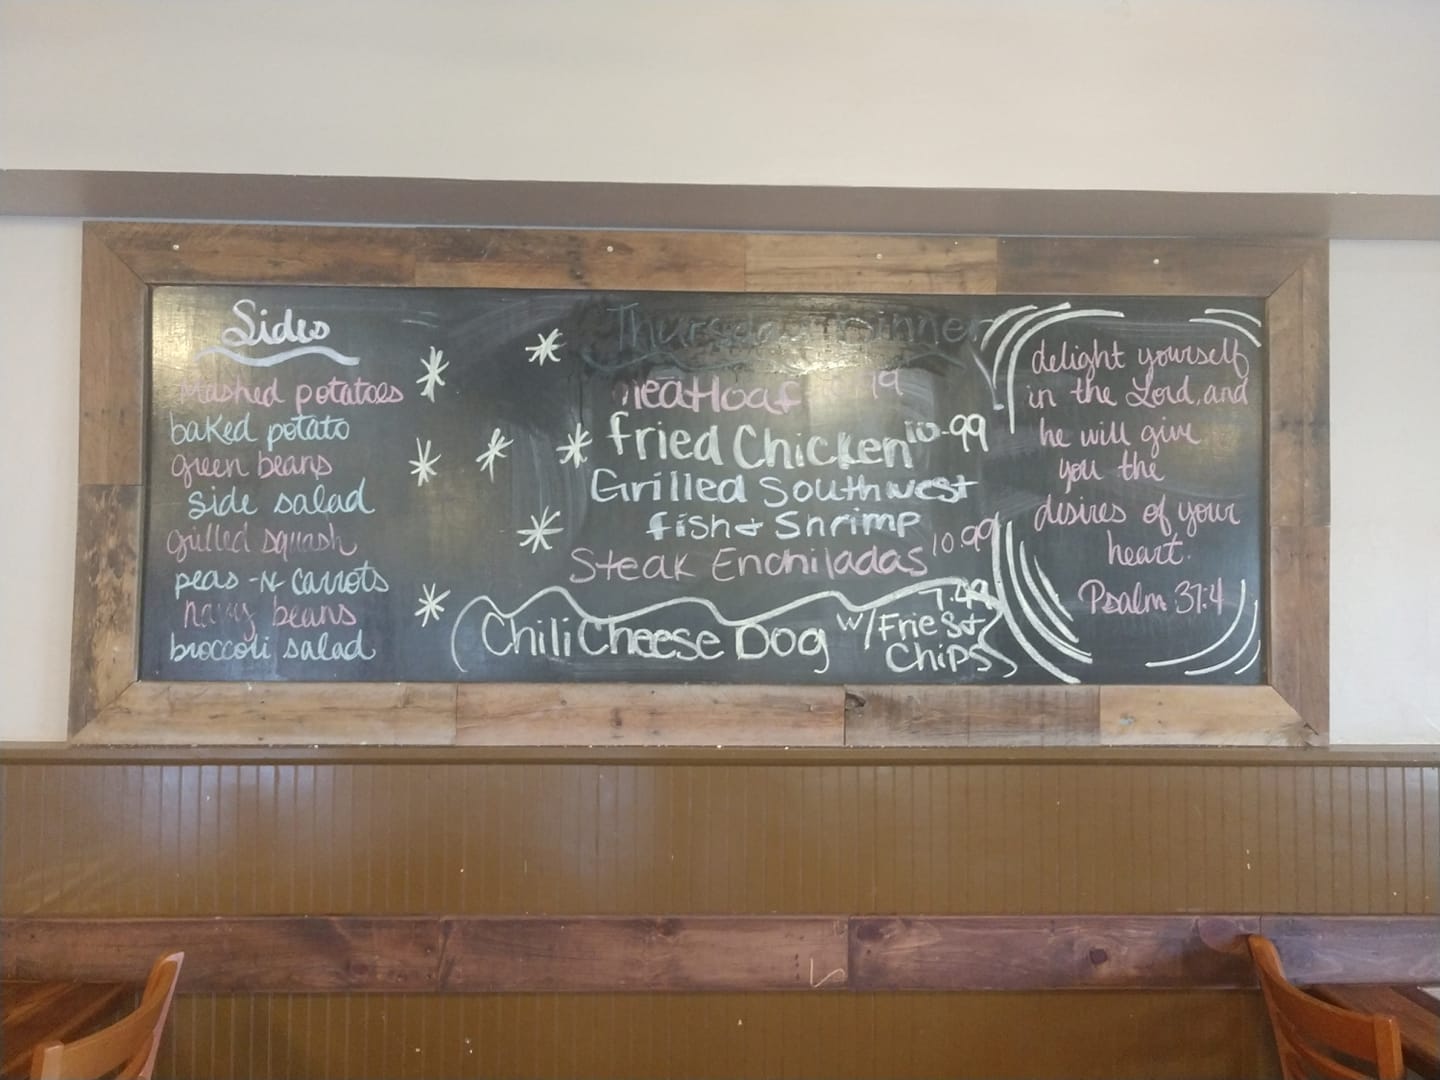 Sides
Mashed potatoes
baked potato
green beans
side salad
grilled squash
peas -N- carrots
navy beans
broccoli salad
Thursday Dinner
Meatloaf
fried Chicken 10.99
Grilled Southwest
fish & Shrimp
Steak Enchiladas 10.99
7.49
Chili Cheese Dog w/ Fries &
Chips
delight yourself
in the Lord, and
he will give
you the
desires of your
heart.
Psalm 37:4